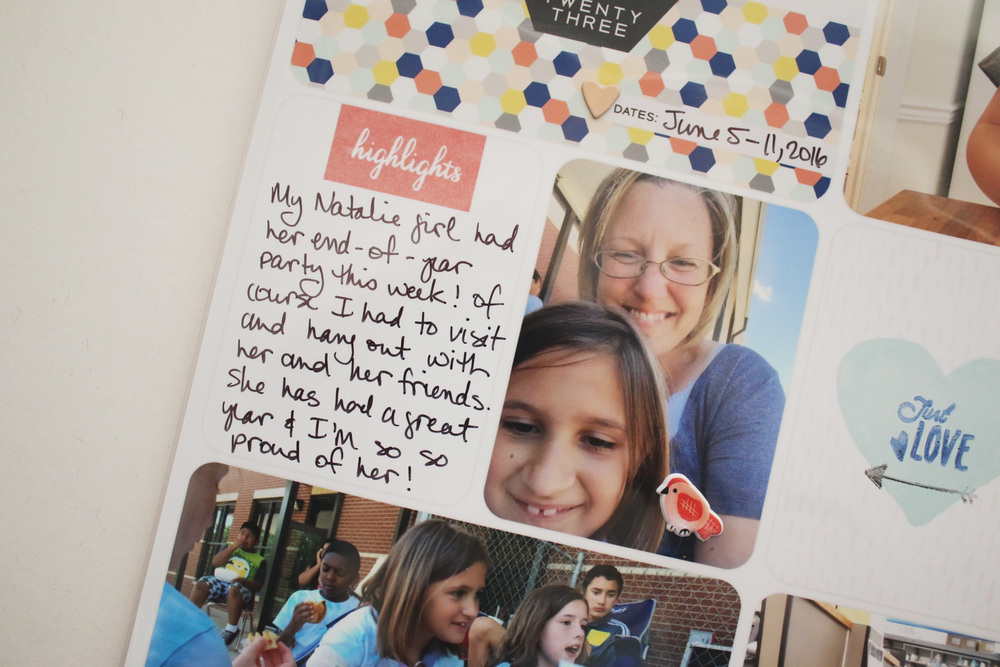 TWENTY
THREE
DATES: June 5-11, 2016
highlights
My Natalie girl had
her end-of-year
party this week! Of
course I had to visit
and hang out with
her and her friends.
She has had a great
year & I'm so so
proud of her!
Just
LOVE